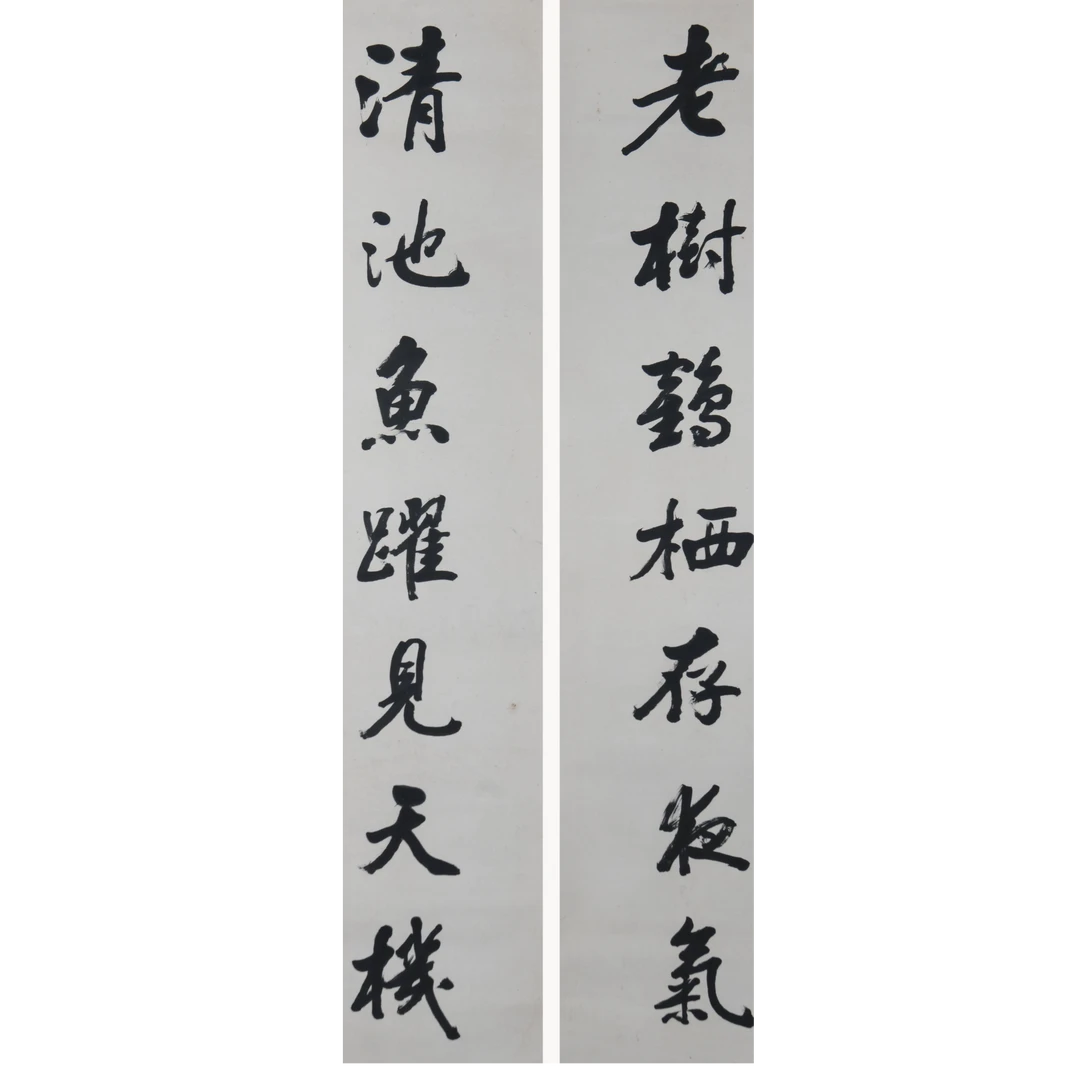 老樹鶴栖存夜氣
清池魚躍見天機